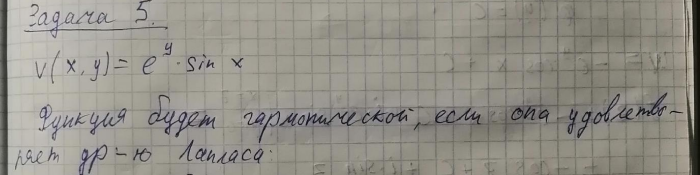 Задача 5.
v(x,y)= e^y · sin x
Функция будет гармонической, если она удовлетво-
ряет ур-ю Лапласа: